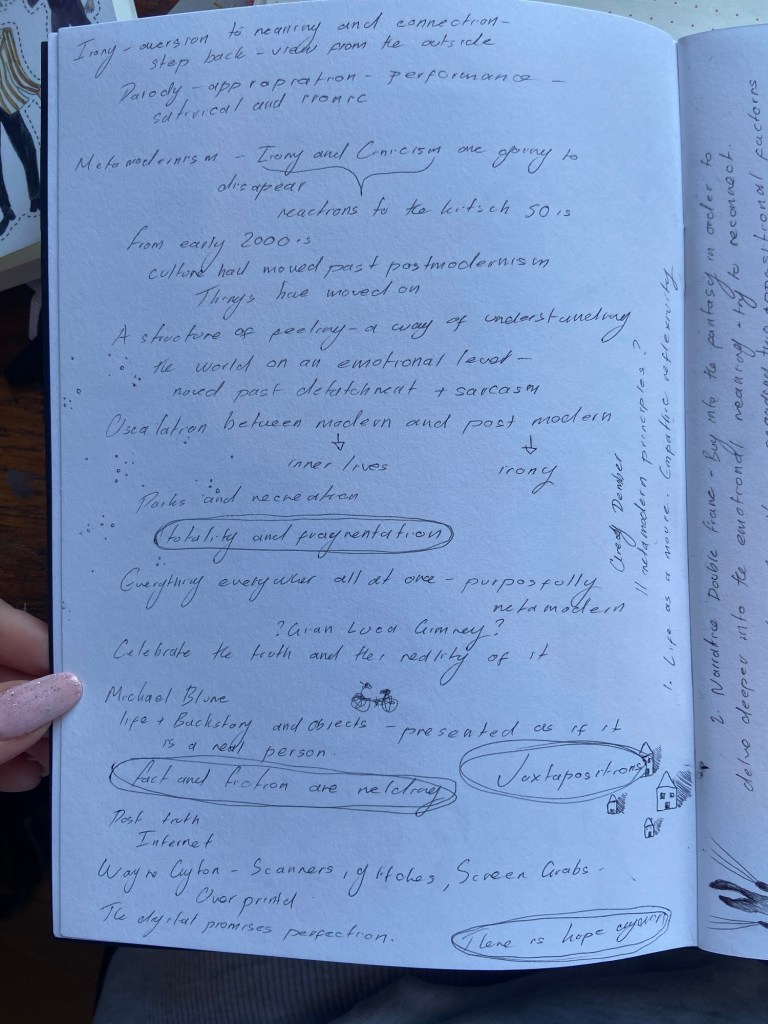 Irony - aversion to meaning and connection -
step back - view from the outside
Parody - appropration - performance -
satirical and ironic
Metamodernism - Irony and Cinicism are going to
disapear
reactions to the kitsch 50 is
from early 2000.s
culture had moved past postmodernism
Things have moved on
A structure of feeling - a way of understanding
the world on an emotional level -
moved past detatchment + sarcasm
Oscalation between modern and post modern
inner lives
irony
Parks and recreation
totality and fragmentation
Everything everywhere all at once - purposfully
metamodern
? Gian Luca Gimney?
Celebrate the truth and the reality of it
Michael Blume
life + Backstory and objects - presented as if it
is a real person.
fact and friction are melding
Juxtapositions
Post truth
Internet
Wayne - Scanners, glitches, Screen Grabs -
Over printd
The digital promises perfection.
There is hope again
Greg Dember
11 metamodern principles?
1. Life as a movie. Empathic reflexivity
2. Narrative Double frame - Buy into the fantasy in order to
delve deeper into the emotional meaning - try to reconnect.
oppositional factors